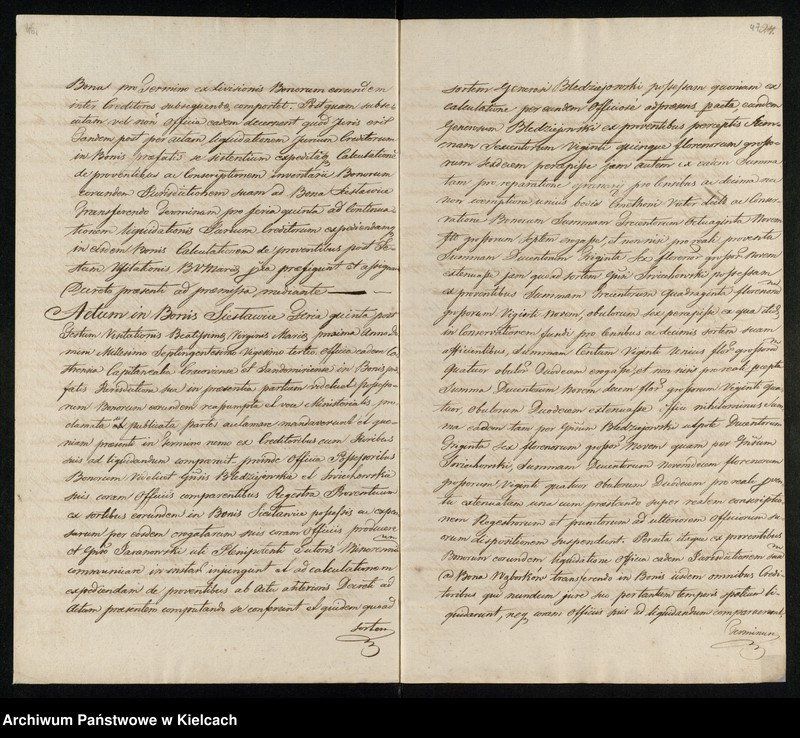 Bona pro Termino ex divisionis Bonorum eorundem
inter Creditores subsequenda comportet. Postquam subse-
cutam vel non Officia eadem decernent quid juris erit
Tandem post peractam liquidationem Jurium Creditorum
in Bonis præfatis se sistentium expeditaq calculatione
de proventibus ac Conscriptionem inventarii Bonorum
eorundem Jurisdictionem suam ad Bona Sieslawice
transferendo Terminum pro feria quinta ad continua-
tionem liquidationis Jurium Creditorum expediendamq
in eisdem Bonis Calculationem de proventibus post Fe-
stum Visitationis B V Mariæ præfigunt et assignant
Decreto præsenti ad præmissa mediante
Actum in Bonis Sieslawice Feria quinta post
Festum Visitationis Beatissimæ Virginis Mariæ proxima Anno Do-
mini Millesimo Septingentesimo Vigesimo tertio. Officia eadem Ca-
strensia Capitanealia et Sandomiriensia in Bonis præ-
fatis Jurisdictione sua in præsentia partium videlicet possesso-
rum Bonorum eorundem reassumpta et voce Ministerialis pro-
clamata ac publicata partes acclamare mandaverunt et quo-
niam præsenti in Termino nemo ex Creditoribus cum Juribus
suis ad liquidandum comparuit proinde Officia Possessoribus
Bonorum videlicet Gnosis Bledzijewska et
suis coram Officiis comparentibus Regestra Proventuum
ex sortibus eorundem in Bonis Sieslawice possessis ac expen-
sarum per eosdem erogatarum suis coram Officiis producere
et Gnoso Janowski uti Plenipotenti Tutoris Minorennium
communicare in instanti injungunt et ad calculationem
expediendam de proventibus ab Actu anterioris Decreti ad
Actum præsentem computando se conferunt et quidem quoad
sortem
sortem Generosi Bledzijowski possessam quoniam ex
calculatione per eundem Officiose ad præsens facta eundem
Generosum Bledzijowski ex proventibus perceptis Sum-
mam Sexcentorum Viginti quinque florenorum grosso-
rum sexdecem percepisse jam autem ex eadem Summa
tam pro reparatione pro Censibus ac decima nec
non exemptione unius bovis dicti ac Conser-
vatione Bonorum Summam Trecentorum Octuaginta Novem
flo grossorum Septem erogasse et non nisi pro reali proventu
Summam Ducentorum Triginta Sex florenor grossor Novem
extenuasse jam quoad sortem Gnsi possessam
ex proventibus Summam Trecentorum Quadraginta florenorum
grossorum Viginti Novem, obulorum sex percepisse ex qua
in Conservationem fundi pro Censibus ac decimis sortem suam
afficientibus, Summam Centum Viginti Unius flor. grossorum
quatuor obulor Duodecem erogasse et non nisi pro reali percepta
Summa Ducentorum Novem decem flor. grossorum Viginti qua-
tuor, Obulorum Duodecem extenuasse. Officia nihilominus Sum-
ma eadem tam per Gnsum Bledzijowski Ducentorum
Triginta Sex florenorum grossor Novem quam per Gnsum
Summam Ducentorum Novemdecem florenorum
grossorum Viginti quatuor Obulorum Duodecem pro reali proven-
tu extenuatam una cum præstando super realem conscriptio-
nem Regestrorum et juramentorum ad ulteriorem Officiorum su-
orum dispositionem suspendunt. Peracta itaque ex proventibus
Bonorum eorundem liquidatione Officia eadem Jurisdictionem suam
ad Bona transferendo in Bonis iisdem omnibus Credi-
toribus qui nundum jure suo per tantum temporis spatium li-
quidarunt, neq coram Officiis suis ad liquidandum comparuerunt,
Terminum
Archiwum Państwowe w Kielcach